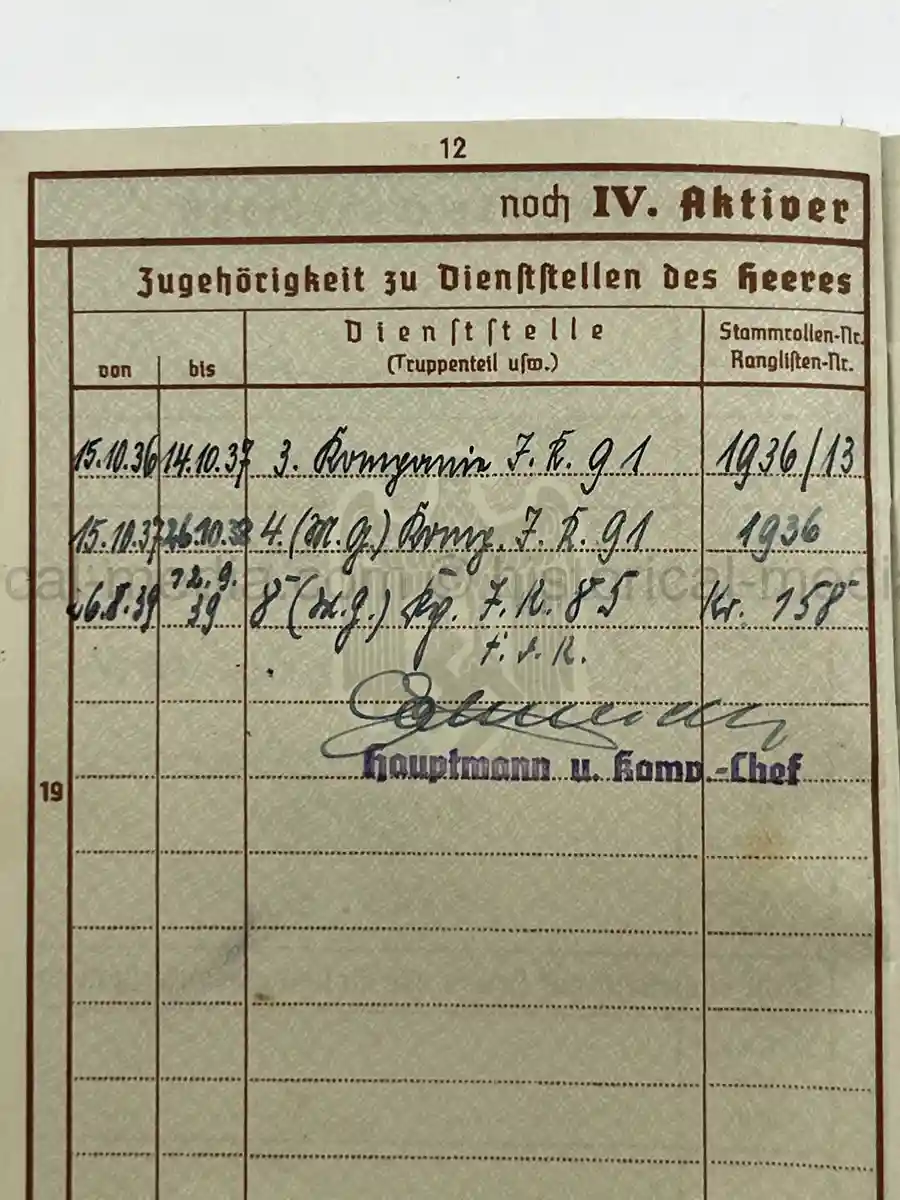 12
noch IV. Aktiver
Zugehörigkeit zu Dienststellen des Heeres
von bis Dienststelle (Truppenteil usw.) Stammrollen-Nr. Ranglisten-Nr.
15.10.36 14.10.37 3. Kompanie J. R. 91 1936/13
15.10.37 26.10.38 4. (M.G.) Komp. J. R. 91 1936
26.8.39 12.9.39 8 (M.G.) Kp. J. R. 85 Kr. 158
F. d. R.
Hauptmann u. Komp.-Chef
19